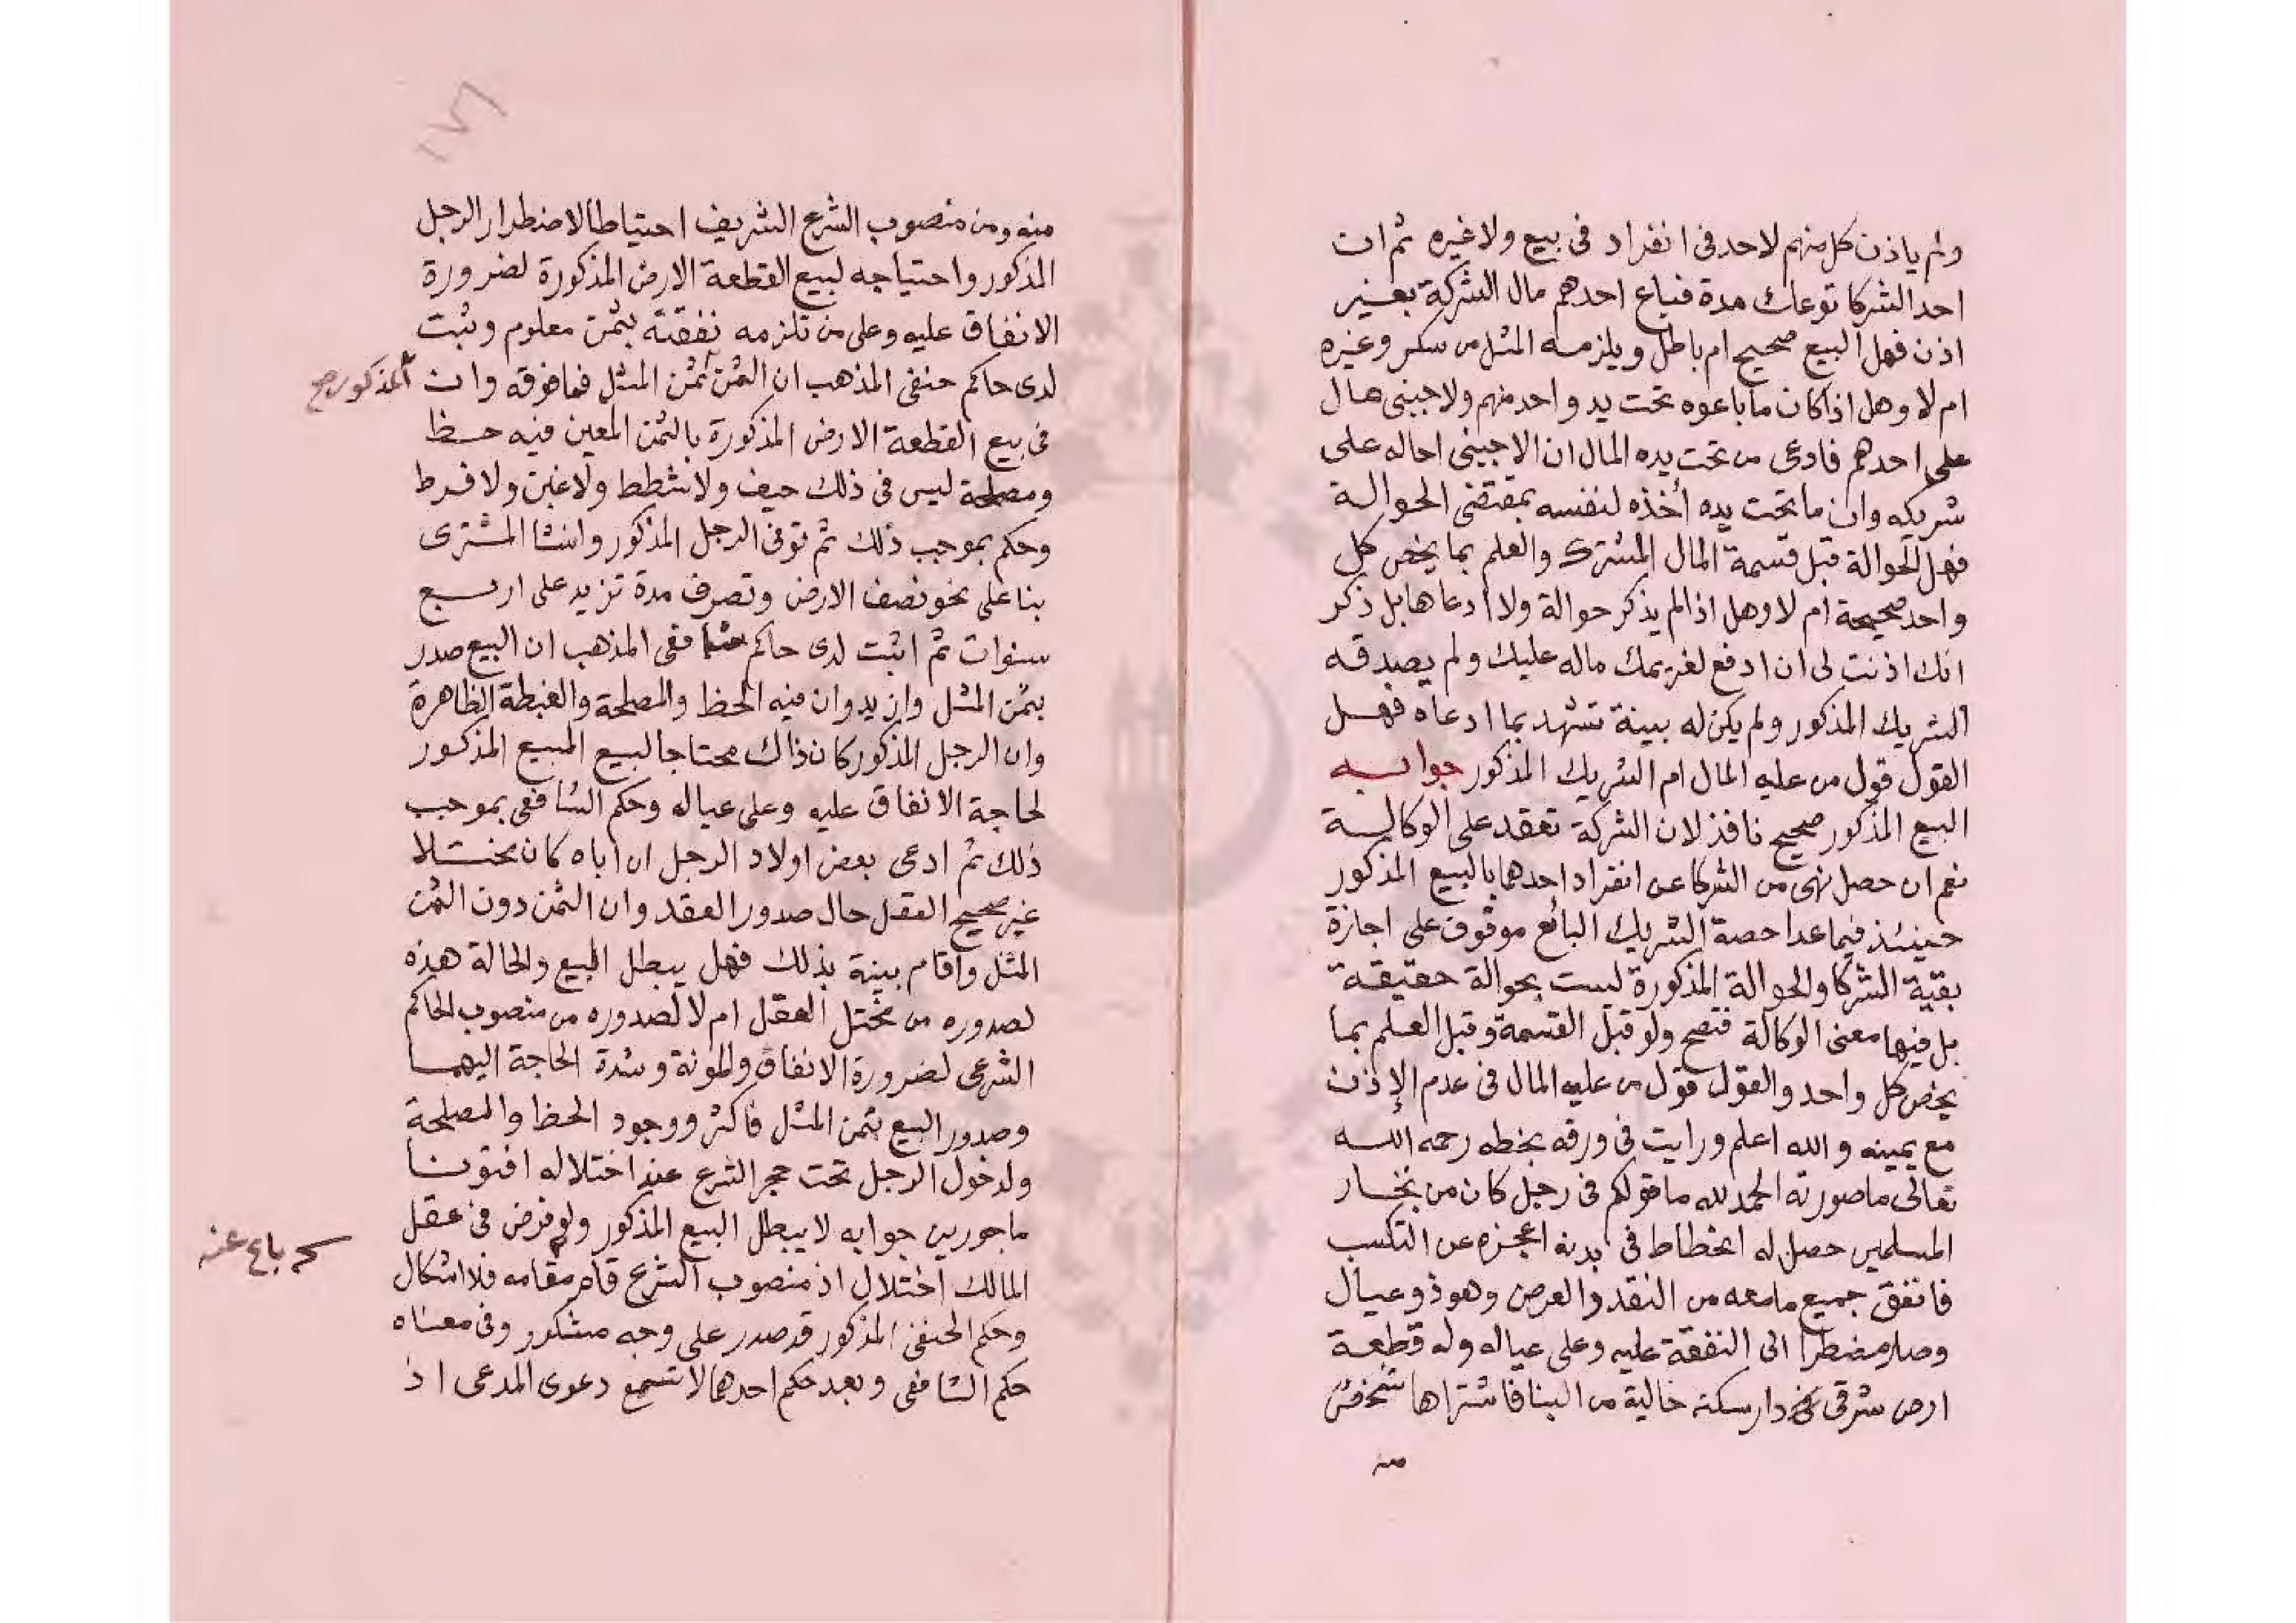 ولم ياذن كل منهم لاحد فى انفراد فى بيع ولا غيره ثم ان
احد الشركا توعك مدة فباع احدهم مال الشركة بغير
اذن فهل البيع صحيح ام باطل ويلزمه المثل من سكر وغيره
ام لا وهل اذا كان ما باعوه تحت يد واحد منهم ولاجنبى مال
على احدهم فادعى من تحت يده المال ان الاجنبى احاله على
شريكه وان ما تحت يده أخذه لنفسه بمقتضى الحوالة
فهل الحوالة قبل قسمة المال المشترك والعلم بما يخص كل
واحد صحيحة ام لا وهل اذا لم يذكر حوالة ولا ادعاها بل ذكر
انك اذنت لى ان ادفع لغريمك ماله عليك ولم يصدقه
الشريك المذكور ولم يكن له بينة تشهد بما ادعاه فهل
القول قول من عليه المال ام الشريك المذكور جوابه
البيع المذكور صحيح نافذ لان الشركة تعقد على الوكالة
نعم ان حصل نهى من الشركا عن انفراد احدهما بالبيع المذكور
حينئذ فيما عدا حصة الشريك البائع موقوف على اجازة
بقية الشركا والحوالة المذكورة ليست بحوالة حقيقة
بل فيها معنى الوكالة فتصح ولو قبل القسمة وقبل العلم بما
يخص كل واحد والقول قول من عليه المال فى عدم الإذن
مع يمينه والله اعلم ورايت فى ورقه بخطه رحمه الله
تعالى ما صورته الحمد لله ما قولكم فى رجل كان من تجار
المسلمين حصل له انحطاط فى بدنه اعجزه عن التكسب
فانفق جميع ما معه من النقد والعرض وهو ذو عيال
وصار مضطرا الى النفقة عليه وعلى عياله وله قطعة
ارض شرقى دار سكنه خالية من البنا فاشتراها شخص
منه
١٧٦
منه ومن منصوب الشرع الشريف احتياطا لاضطرار الرجل
المذكور واحتياجه لبيع القطعة الارض المذكورة لضرورة
الانفاق عليه وعلى من تلزمه نفقته بثمن معلوم وثبت
لدى حاكم حنفى المذهب ان الثمن ثمن المثل فما فوقه وان
المذكور صح
فى بيع القطعة الارض المذكورة بالثمن المعين فيه حظ
ومصلحة ليس فى ذلك حيف ولا شطط ولا غبن ولا فرط
وحكم بموجب ذلك ثم توفى الرجل المذكور وانشا المشترى
بنا على نحو نصف الارض وتصرف مدة تزيد على اربع
سنوات ثم اثبت لدى حاكم شافعى المذهب ان البيع صدر
بثمن المثل وازيد وان فيه الحظ والمصلحة والغبطة الظاهرة
وان الرجل المذكور كان ذاك محتاجا لبيع المبيع المذكور
لحاجة الانفاق عليه وعلى عياله وحكم الشافعى بموجب
ذلك ثم ادعى بعض اولاد الرجل ان اباه كان مختلا
غير صحيح العقل حال صدور العقد وان الثمن دون الثمن
المثل واقام بينة بذلك فهل يبطل البيع والحالة هذه
لصدوره من مختل العقل ام لا لصدوره من منصوب الحاكم
الشرعى لضرورة الانفاق والمونة وشدة الحاجة اليهما
وصدور البيع بثمن المثل فاكثر ووجود الحظ والمصلحة
ولدخول الرجل تحت حجر الشرع عند اختلاله افتونا
ماجورين جوابه لا يبطل البيع المذكور ولو فرض فى عقل
باع عنه
المالك اختلال اذ منصوب الشرع قام مقامه فلا اشكال
وحكم الحنفى المذكور قد صدر على وجه مشكور وفى معناه
حكم الشافعى وبعد حكم احدهما لا تسمع دعوى المدعى اذ